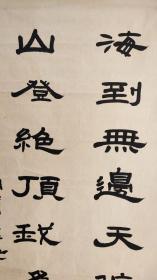 海到無邊天
山登絕頂我